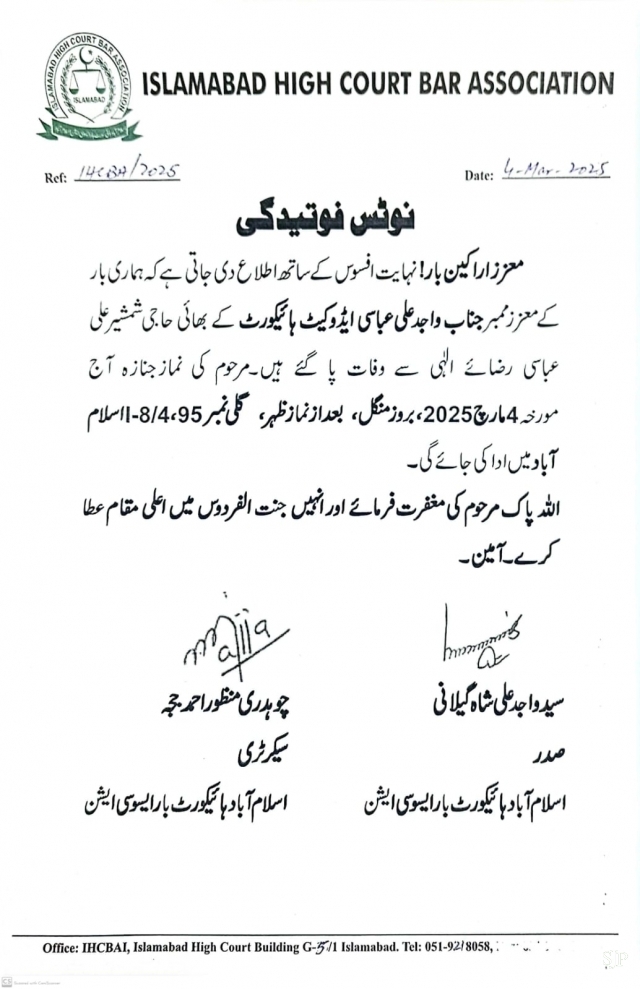 ISLAMABAD HIGH COURT BAR ASSOCIATION
ISLAMABAD HIGH COURT BAR ASSOCIATION
ISLAMABAD
Ref: IHCBA/2025
Date: 4-Mar-2025
نوٹس فوتیدگی
معزز اراکین بار! نہایت افسوس کے ساتھ اطلاع دی جاتی ہے کہ ہماری بار
کے معزز ممبر جناب واجد علی عباسی ایڈوکیٹ ہائیکورٹ کے بھائی حاجی شمشیر علی
عباسی رضائے الٰہی سے وفات پا گئے ہیں۔مرحوم کی نماز جنازہ آج
مورخہ 4 مارچ 2025، بروز منگل، بعد از نماز ظہر، گلی نمبر 95، I-8/4 اسلام
آباد میں ادا کی جائے گی۔
اللہ پاک مرحوم کی مغفرت فرمائے اور انہیں جنت الفردوس میں اعلی مقام عطا
کرے۔آمین۔
سید واجد علی شاہ گیلانی
صدر
اسلام آباد ہائیکورٹ بار ایسوسی ایشن
چوہدری منظور احمد ججہ
سیکرٹری
اسلام آباد ہائیکورٹ بار ایسوسی ایشن
Office: IHCBAI, Islamabad High Court Building G-5/1 Islamabad. Tel: 051-92/8058,
CS Scanned with CamScanner